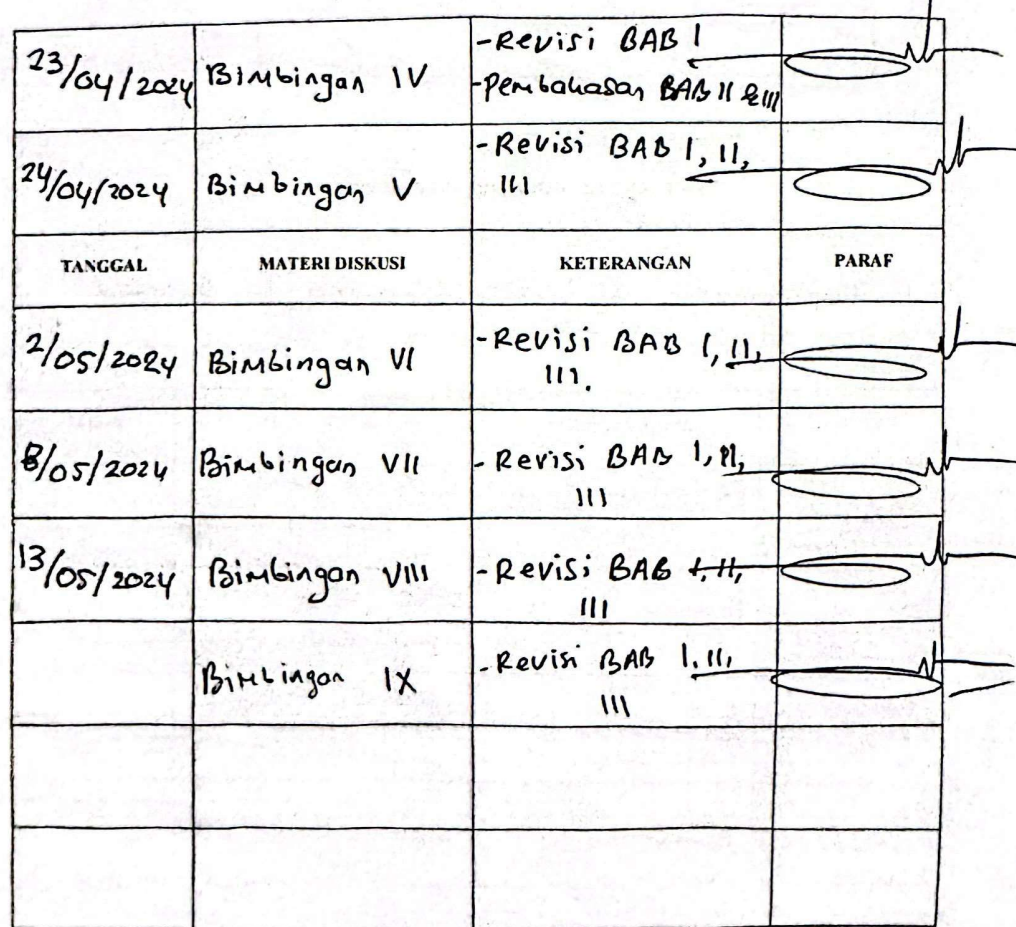 23/04/2024 Bimbingan IV -Revisi BAB I
-pembahasan BAB II & III
24/04/2024 Bimbingan V -Revisi BAB I, II,
III
TANGGAL MATERI DISKUSI KETERANGAN PARAF
2/05/2024 Bimbingan VI -Revisi BAB I, II,
III.
8/05/2024 Bimbingan VII -Revisi BAB I, II,
III
13/05/2024 Bimbingan VIII -Revisi BAB I, II,
III
Bimbingan IX -Revisi BAB I, II,
III